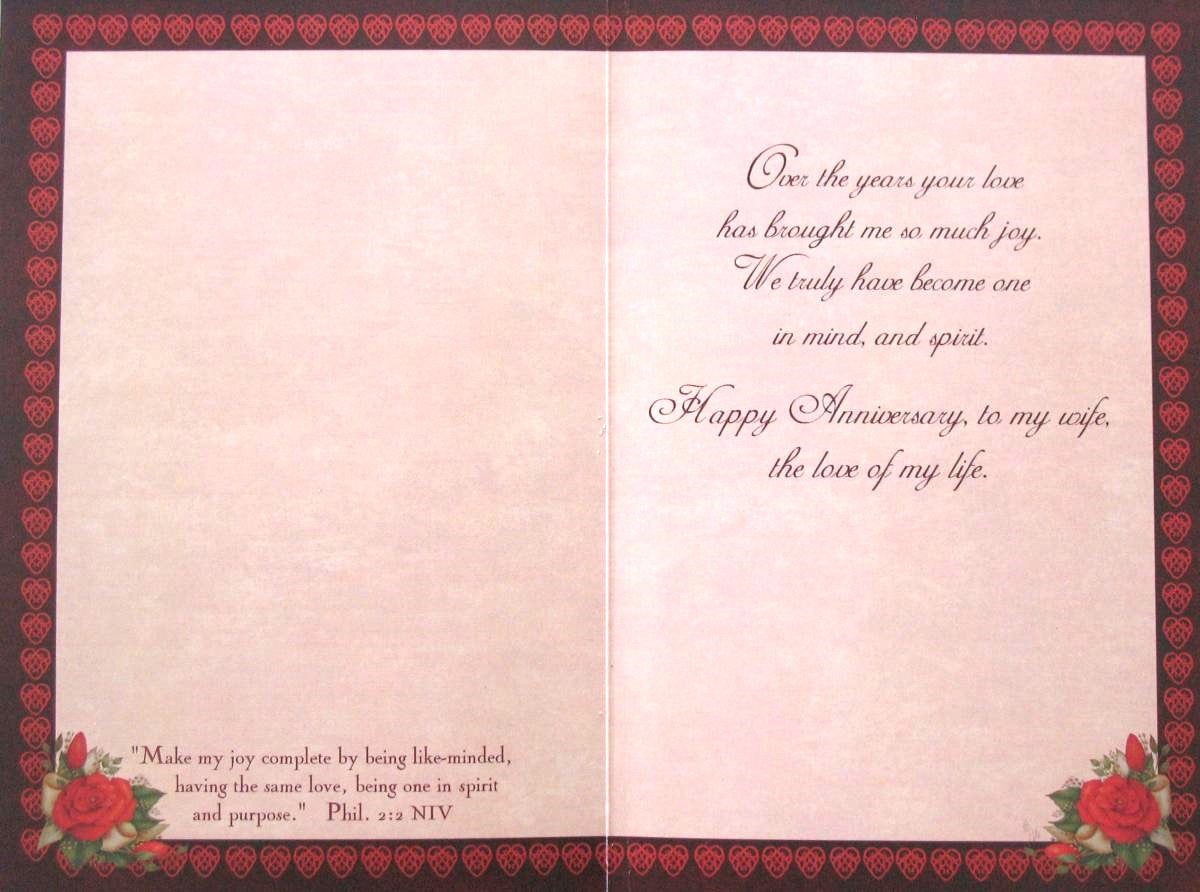 "Make my joy complete by being like-minded,
having the same love, being one in spirit
and purpose."   Phil. 2:2 NIV
Over the years your love
has brought me so much joy.
We truly have become one
in mind, and spirit.
Happy Anniversary, to my wife,
the love of my life.